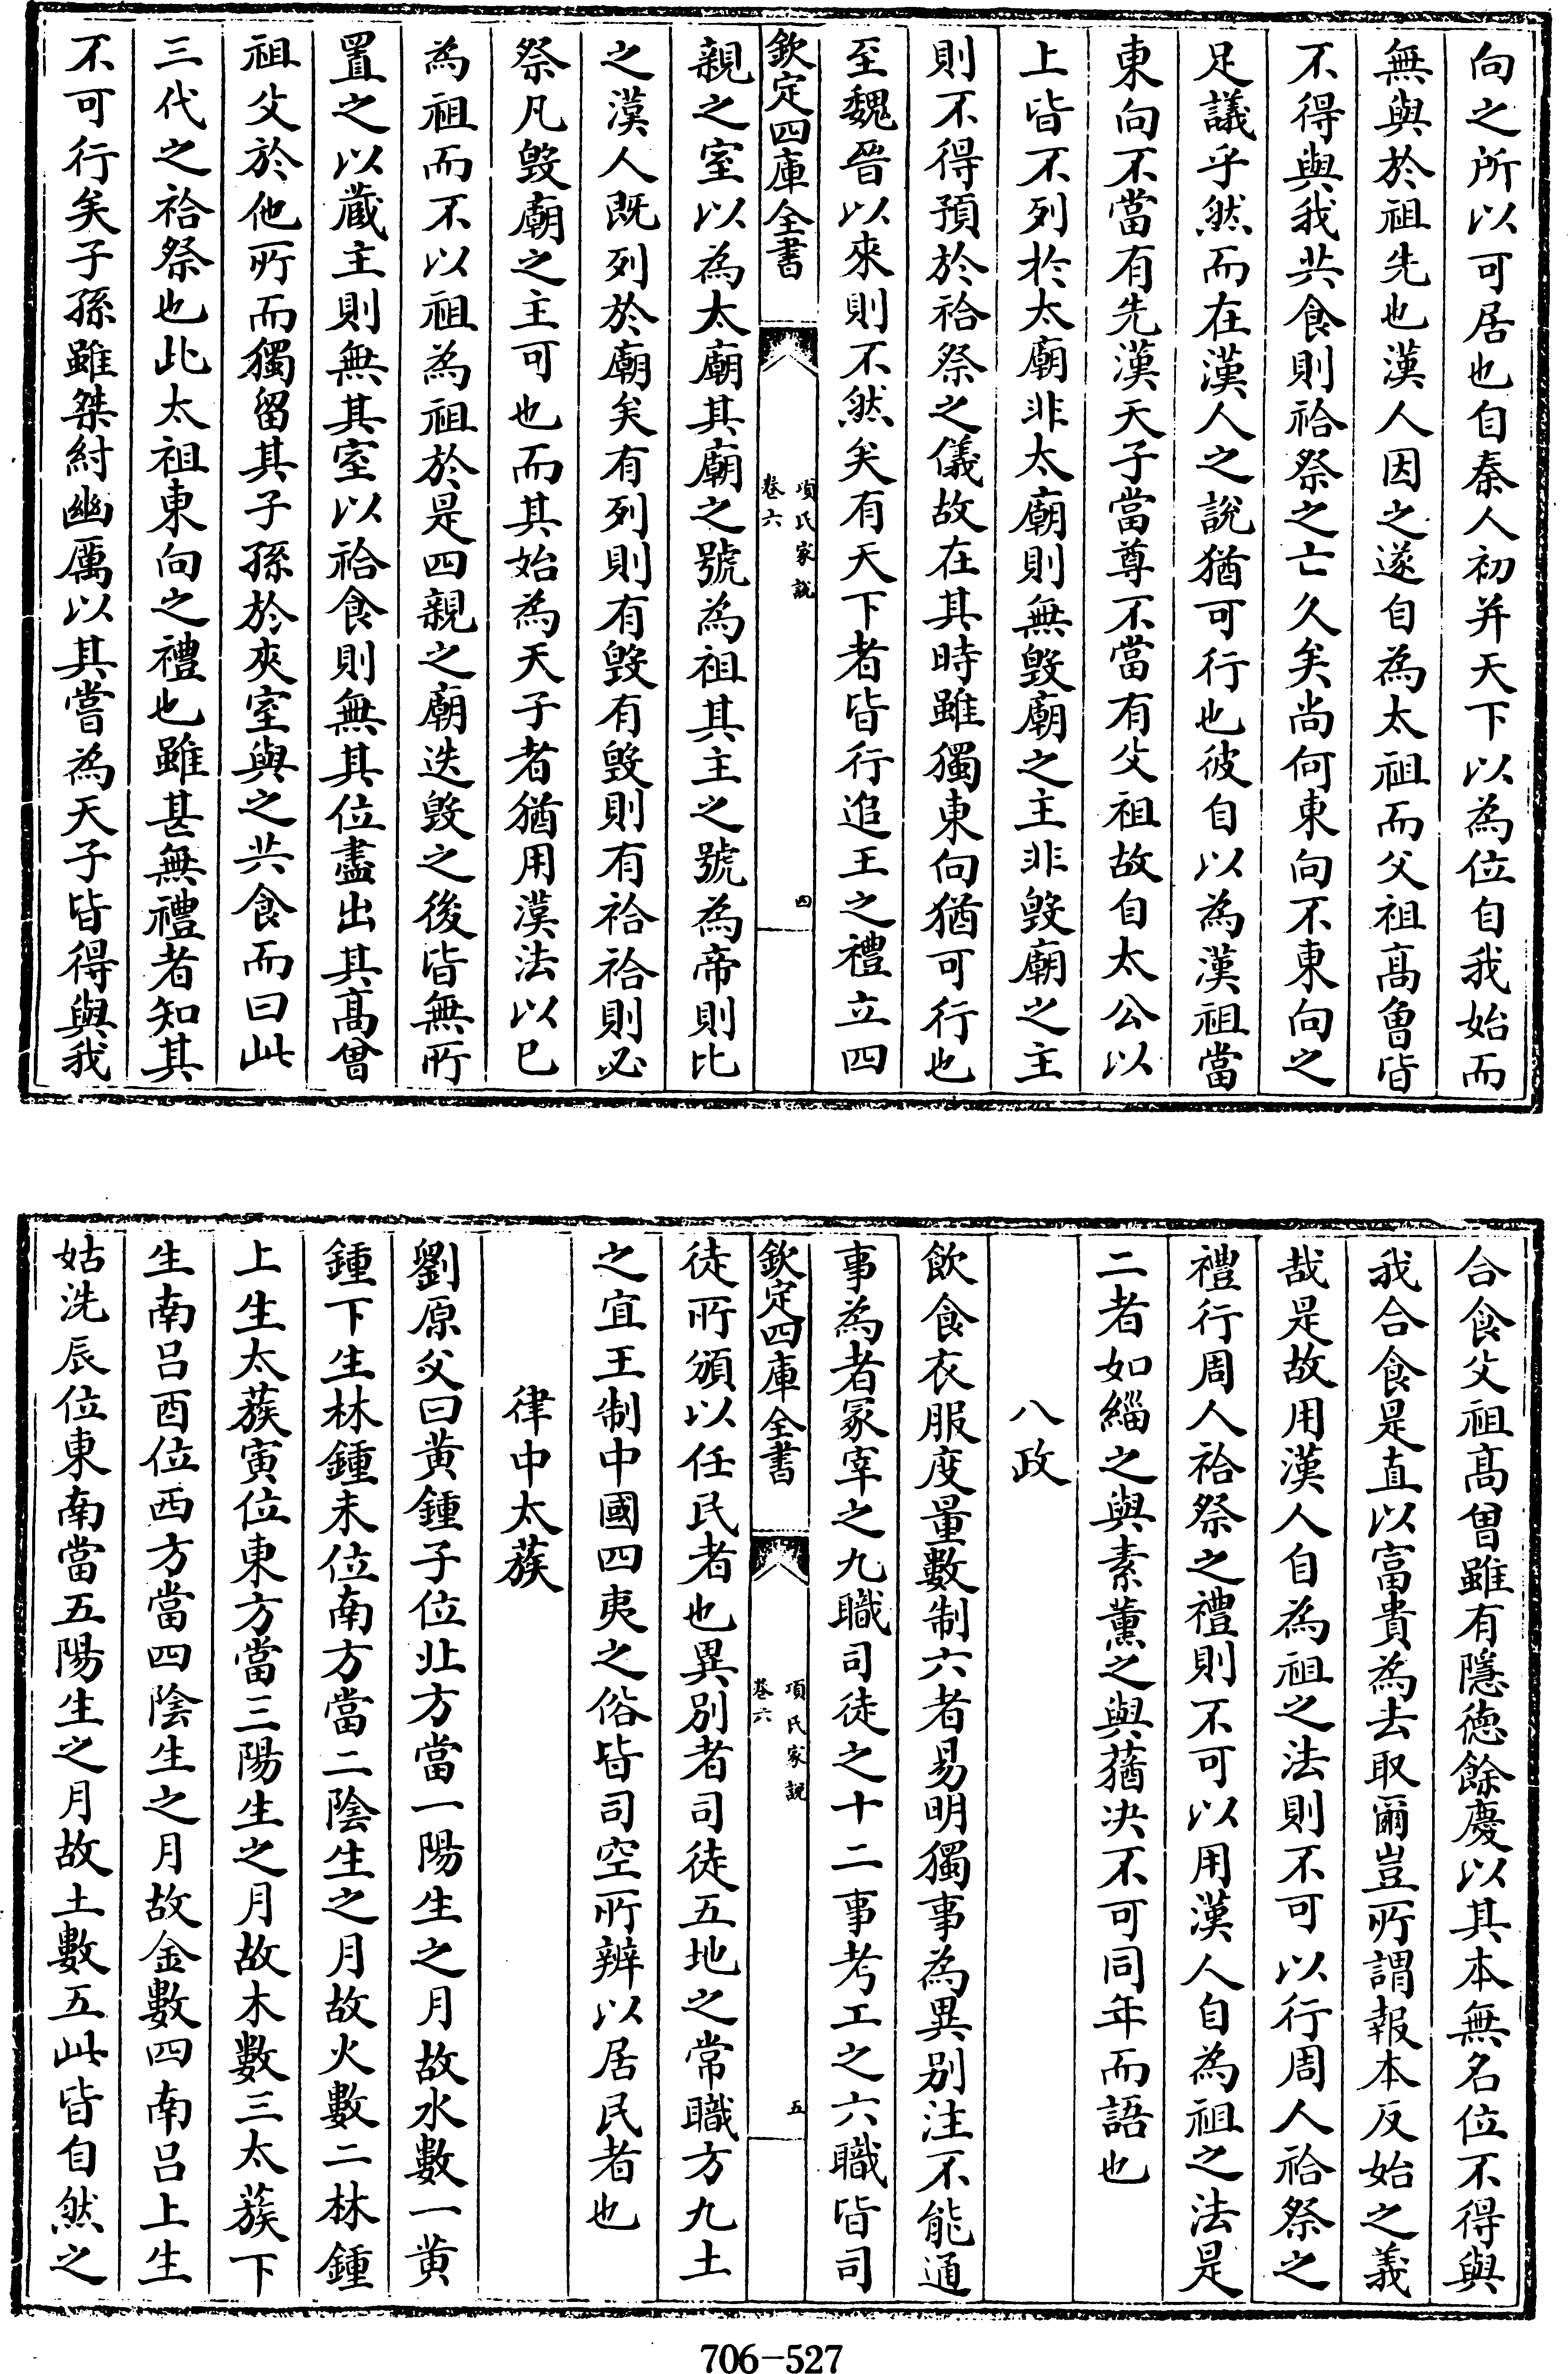 向之所以可居也自秦人初并天下以為位自我始而
無與於祖先也漢人因之遂自為太祖而父祖髙曽皆
不得與我共食則祫祭之亡久矣尚何東向不東向之
足議乎然而在漢人之說猶可行也彼自以為漢祖當
東向不當有先漢天子當尊不當有父祖故自太公以
上皆不列於太廟非太廟則無毁廟之主非毁廟之主
則不得預於祫祭之儀故在其時雖獨東向猶可行也
至魏晉以來則不然矣有天下者皆行追王之禮立四
欽定四庫全書
項氏家說
卷六
四
親之室以為太廟其廟之號為祖其主之號為帝則比
之漢人既列於廟矣有列則有毁有毁則有祫祫則必
祭凡毁廟之主可也而其始為天子者猶用漢法以已
為祖而不以祖為祖於是四親之廟迭毁之後皆無所
置之以藏主則無其室以祫食則無其位盡出其髙曽
祖父於他所而獨留其子孫於夾室與之共食而曰此
三代之祫祭也此太祖東向之禮也雖甚無禮者知其
不可行矣子孫雖桀紂幽厲以其嘗為天子皆得與我
合食父祖髙曽雖有隱徳餘慶以其本無名位不得與
我合食是直以富貴為去取爾豈所謂報本反始之義
哉是故用漢人自為祖之法則不可以行周人祫祭之
禮行周人祫祭之禮則不可以用漢人自為祖之法是
二者如緇之與素薰之與蕕决不可同年而語也
八政
飲食衣服度量數制六者易明獨事為異别注不能通
事為者冢宰之九職司徒之十二事考工之六職皆司
欽定四庫全書
項氏家說
卷六
五
徒所頒以任民者也異别者司徒五地之常職方九土
之宜王制中國四夷之俗皆司空所辨以居民者也
律中太蔟
劉原父曰黄鍾子位北方當一陽生之月故水數一黄
鍾下生林鍾未位南方當二陰生之月故火數二林鍾
上生太蔟寅位東方當三陽生之月故木數三太蔟下
生南吕酉位西方當四陰生之月故金數四南吕上生
姑洗辰位東南當五陽生之月故土數五此皆自然之
706-527